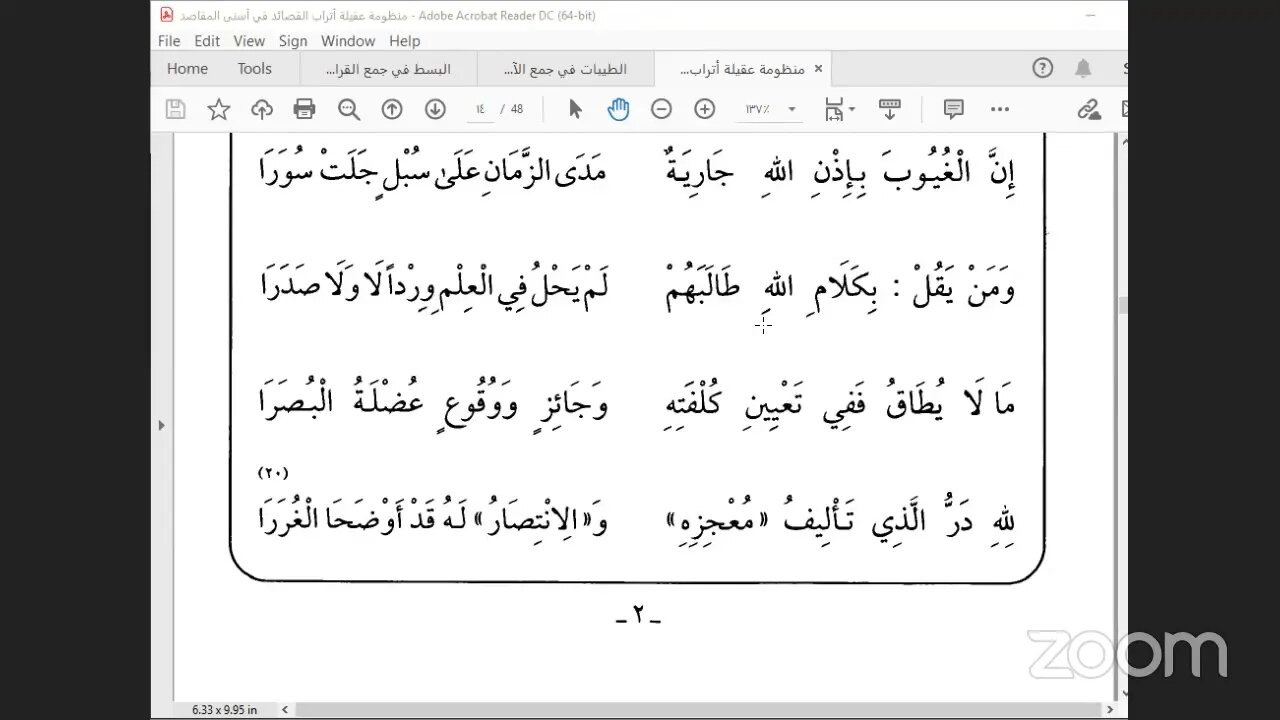 منظومة عقيلة أتراب القصائد في أسنى المقاصد - Adobe Acrobat Reader DC (64-bit)
File Edit View Sign Window Help
Home Tools البسط في جمع القرا... الطيبات في جمع الآ... منظومة عقيلة أتراب... ×
١٤ / 48 ١٣٧٪
إِنَّ الْغُيُوبَ بِإِذْنِ اللهِ جَارِيَةٌ مَدَى الزَّمَانِ عَلَىٰ سُبْلٍ جَلَتْ سُوَرَا
وَمَنْ يَقُلْ : بِكَلَامِ اللهِ طَالَبَهُمْ لَمْ يَحْلُ فِي الْعِلْمِ وِرْداً لَا وَلَا صَدَرَا
مَا لَا يُطَاقُ فَفِي تَعْيِينِ كُلْفَتِهِ وَجَائِزٍ وَوُقُوعٍ عُضْلَةُ الْبُصَرَا
(٢٠)
لِلهِ دَرُّ الَّذِي تَأْلِيفُ «مُعْجِزِهِ» وَ«الِانْتِصَارُ» لَهُ قَدْ أَوْضَحَا الْغُرَرَا
ـ ٢ ـ
zoom
6.33 x 9.95 in